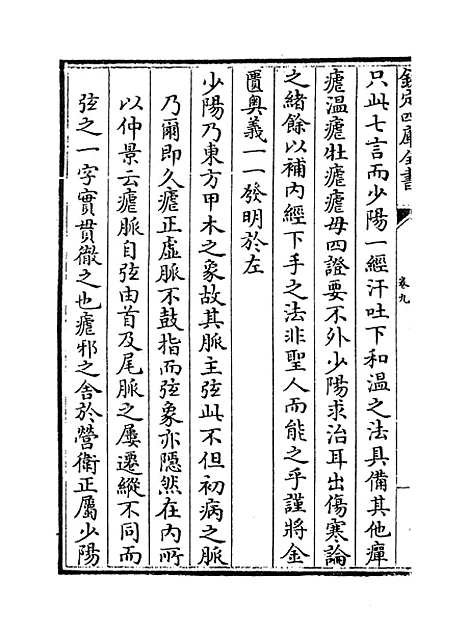 欽定四庫全書
卷九
只此七言而少陽一經汗吐下和温之法具備其他癉
瘧温瘧牡瘧瘧母四證要不外少陽求治耳出傷寒論
之緒餘以補内經下手之法非聖人而能之乎謹將金
匱奥義一一發明於左
少陽乃東方甲木之象故其脈主弦此不但初病之脈
乃爾即久瘧正虚脈不鼓指而弦象亦隱然在内所
以仲景云瘧脈自弦由首及尾脈之屢遷縱不同而
弦之一字實貫徹之也瘧邪之舍於營衛正屬少陽